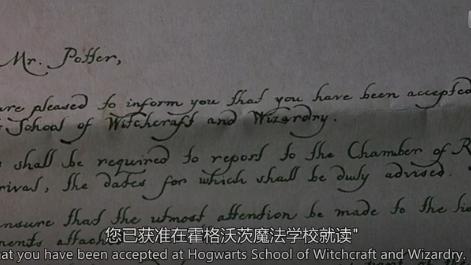 Mr. Potter,
are pleased to inform you that you have been accepted
School of Witchcraft and Wizardry.
shall be required to report to the Chamber of R
rival, the dates for which shall be duly advised.
ensure that the utmost attention be made to the
ments attached
您已获准在霍格沃茨魔法学校就读"
at you have been accepted at Hogwarts School of Witchcraft and Wizardry.